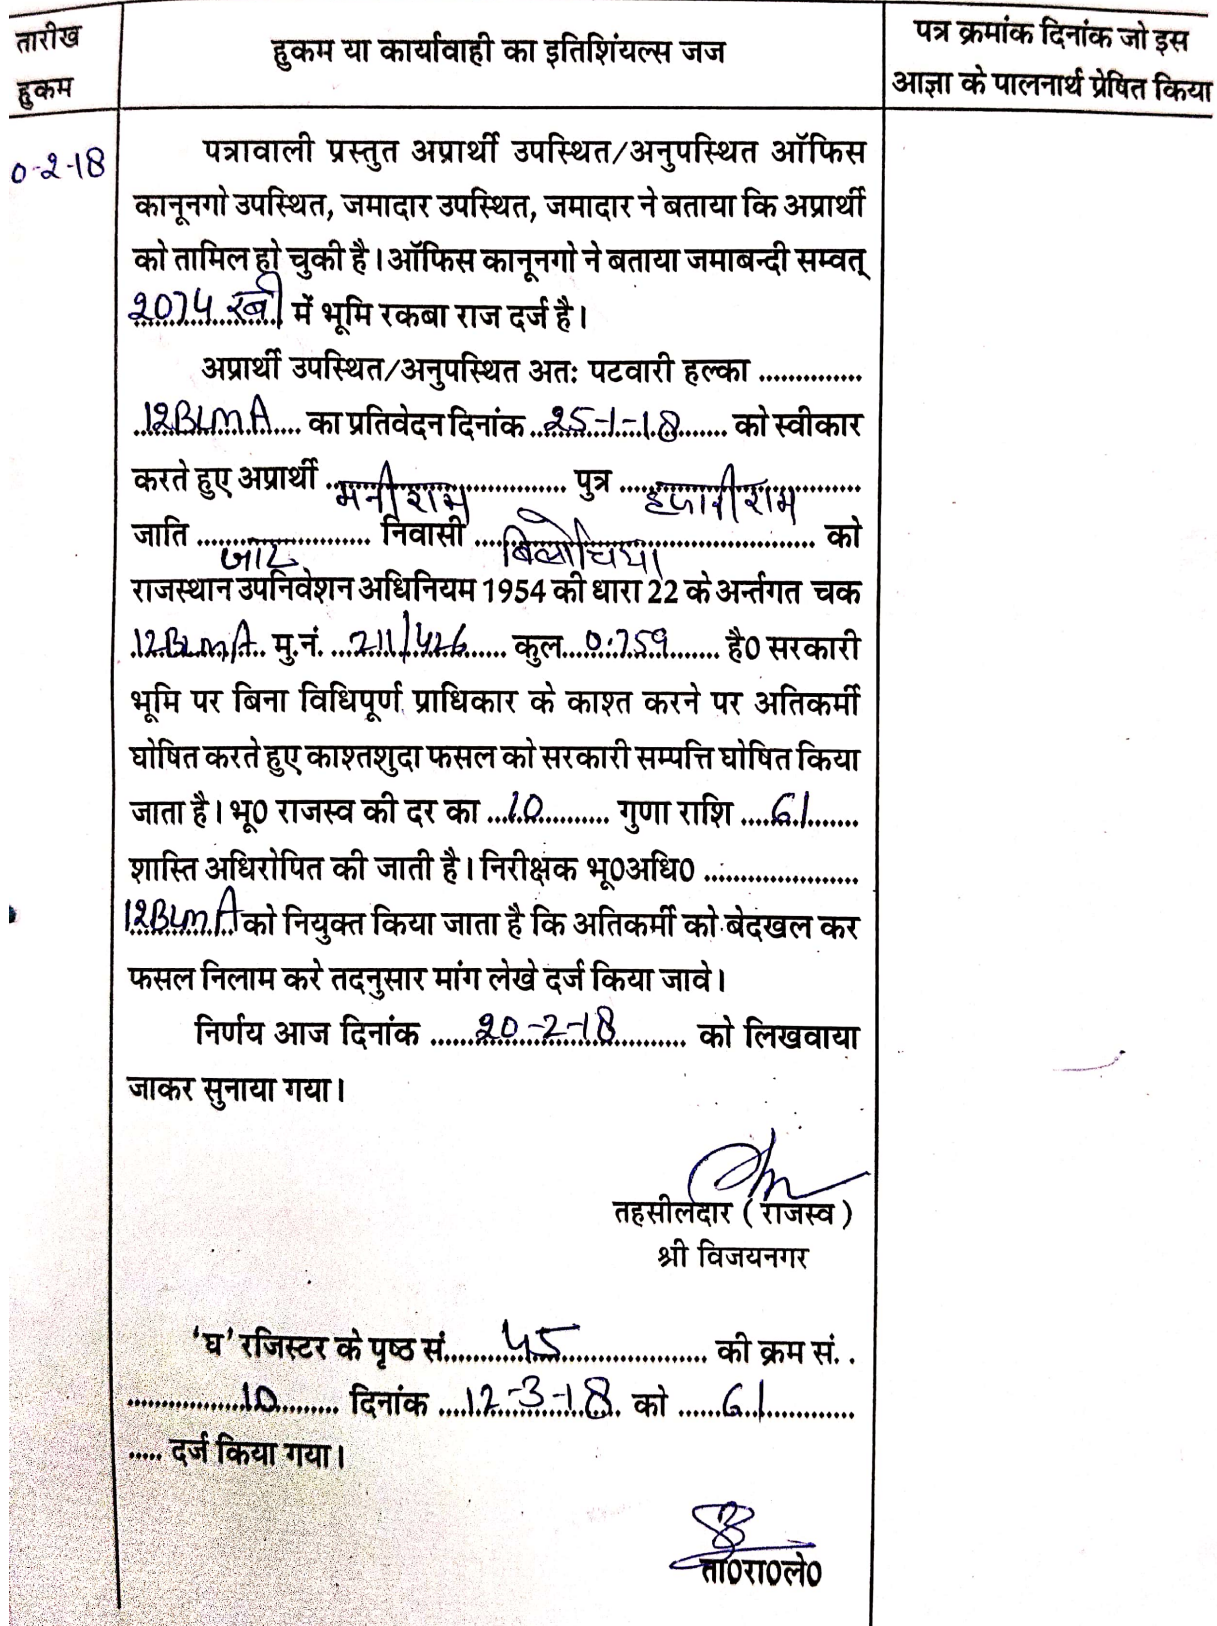 तारीख
हुकम
हुकम या कार्यावाही का इतिशिंयल्स जज
पत्र क्रमांक दिनांक जो इस
आज्ञा के पालनार्थ प्रेषित किया
0-2-18
पत्रावाली प्रस्तुत अप्रार्थी उपस्थित/अनुपस्थित ऑफिस
कानूनगो उपस्थित, जमादार उपस्थित, जमादार ने बताया कि अप्रार्थी
को तामिल हो चुकी है। ऑफिस कानूनगो ने बताया जमाबन्दी सम्वत्
2074 रबी में भूमि रकबा राज दर्ज है।
अप्रार्थी उपस्थित/अनुपस्थित अतः पटवारी हल्का ...............
12BLMA का प्रतिवेदन दिनांक 25-1-18 को स्वीकार
करते हुए अप्रार्थी मनीराम पुत्र हजारीराम
जाति जाट निवासी बिलोचिया को
राजस्थान उपनिवेशन अधिनियम 1954 की धारा 22 के अर्न्तगत चक
12BLMA मु.नं. 211/426 कुल 0.759 है0 सरकारी
भूमि पर बिना विधिपूर्ण प्राधिकार के काश्त करने पर अतिकर्मी
घोषित करते हुए काश्तशुदा फसल को सरकारी सम्पत्ति घोषित किया
जाता है। भू0 राजस्व की दर का 10 गुणा राशि 61
शास्ति अधिरोपित की जाती है। निरीक्षक भू0अधि0 ......................
12BLMA को नियुक्त किया जाता है कि अतिकर्मी को बेदखल कर
फसल निलाम करे तदनुसार मांग लेखे दर्ज किया जावे।
निर्णय आज दिनांक 20-2-18 को लिखवाया
जाकर सुनाया गया।
तहसीलदार ( राजस्व )
श्री विजयनगर
'घ' रजिस्टर के पृष्ठ सं. 45 की क्रम सं. .
10 दिनांक 12-3-18 को 61
..... दर्ज किया गया।
ता0रा0ले0